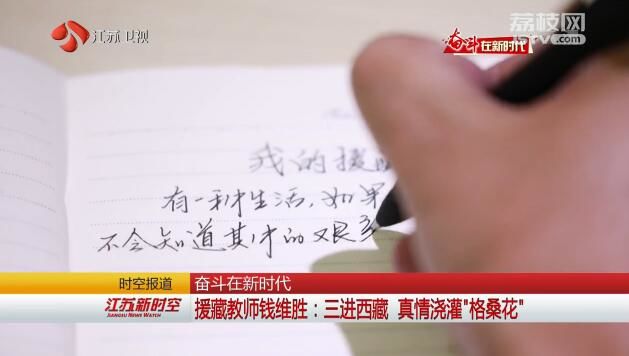 江苏卫视
奋斗在新时代
荔枝网
jstv.com
我的援
有一种生活,如果
不会知道其中的艰
时空报道
奋斗在新时代
江苏新时空
JIANGSU NEWS WATCH
援藏教师钱维胜:三进西藏 真情浇灌"格桑花"